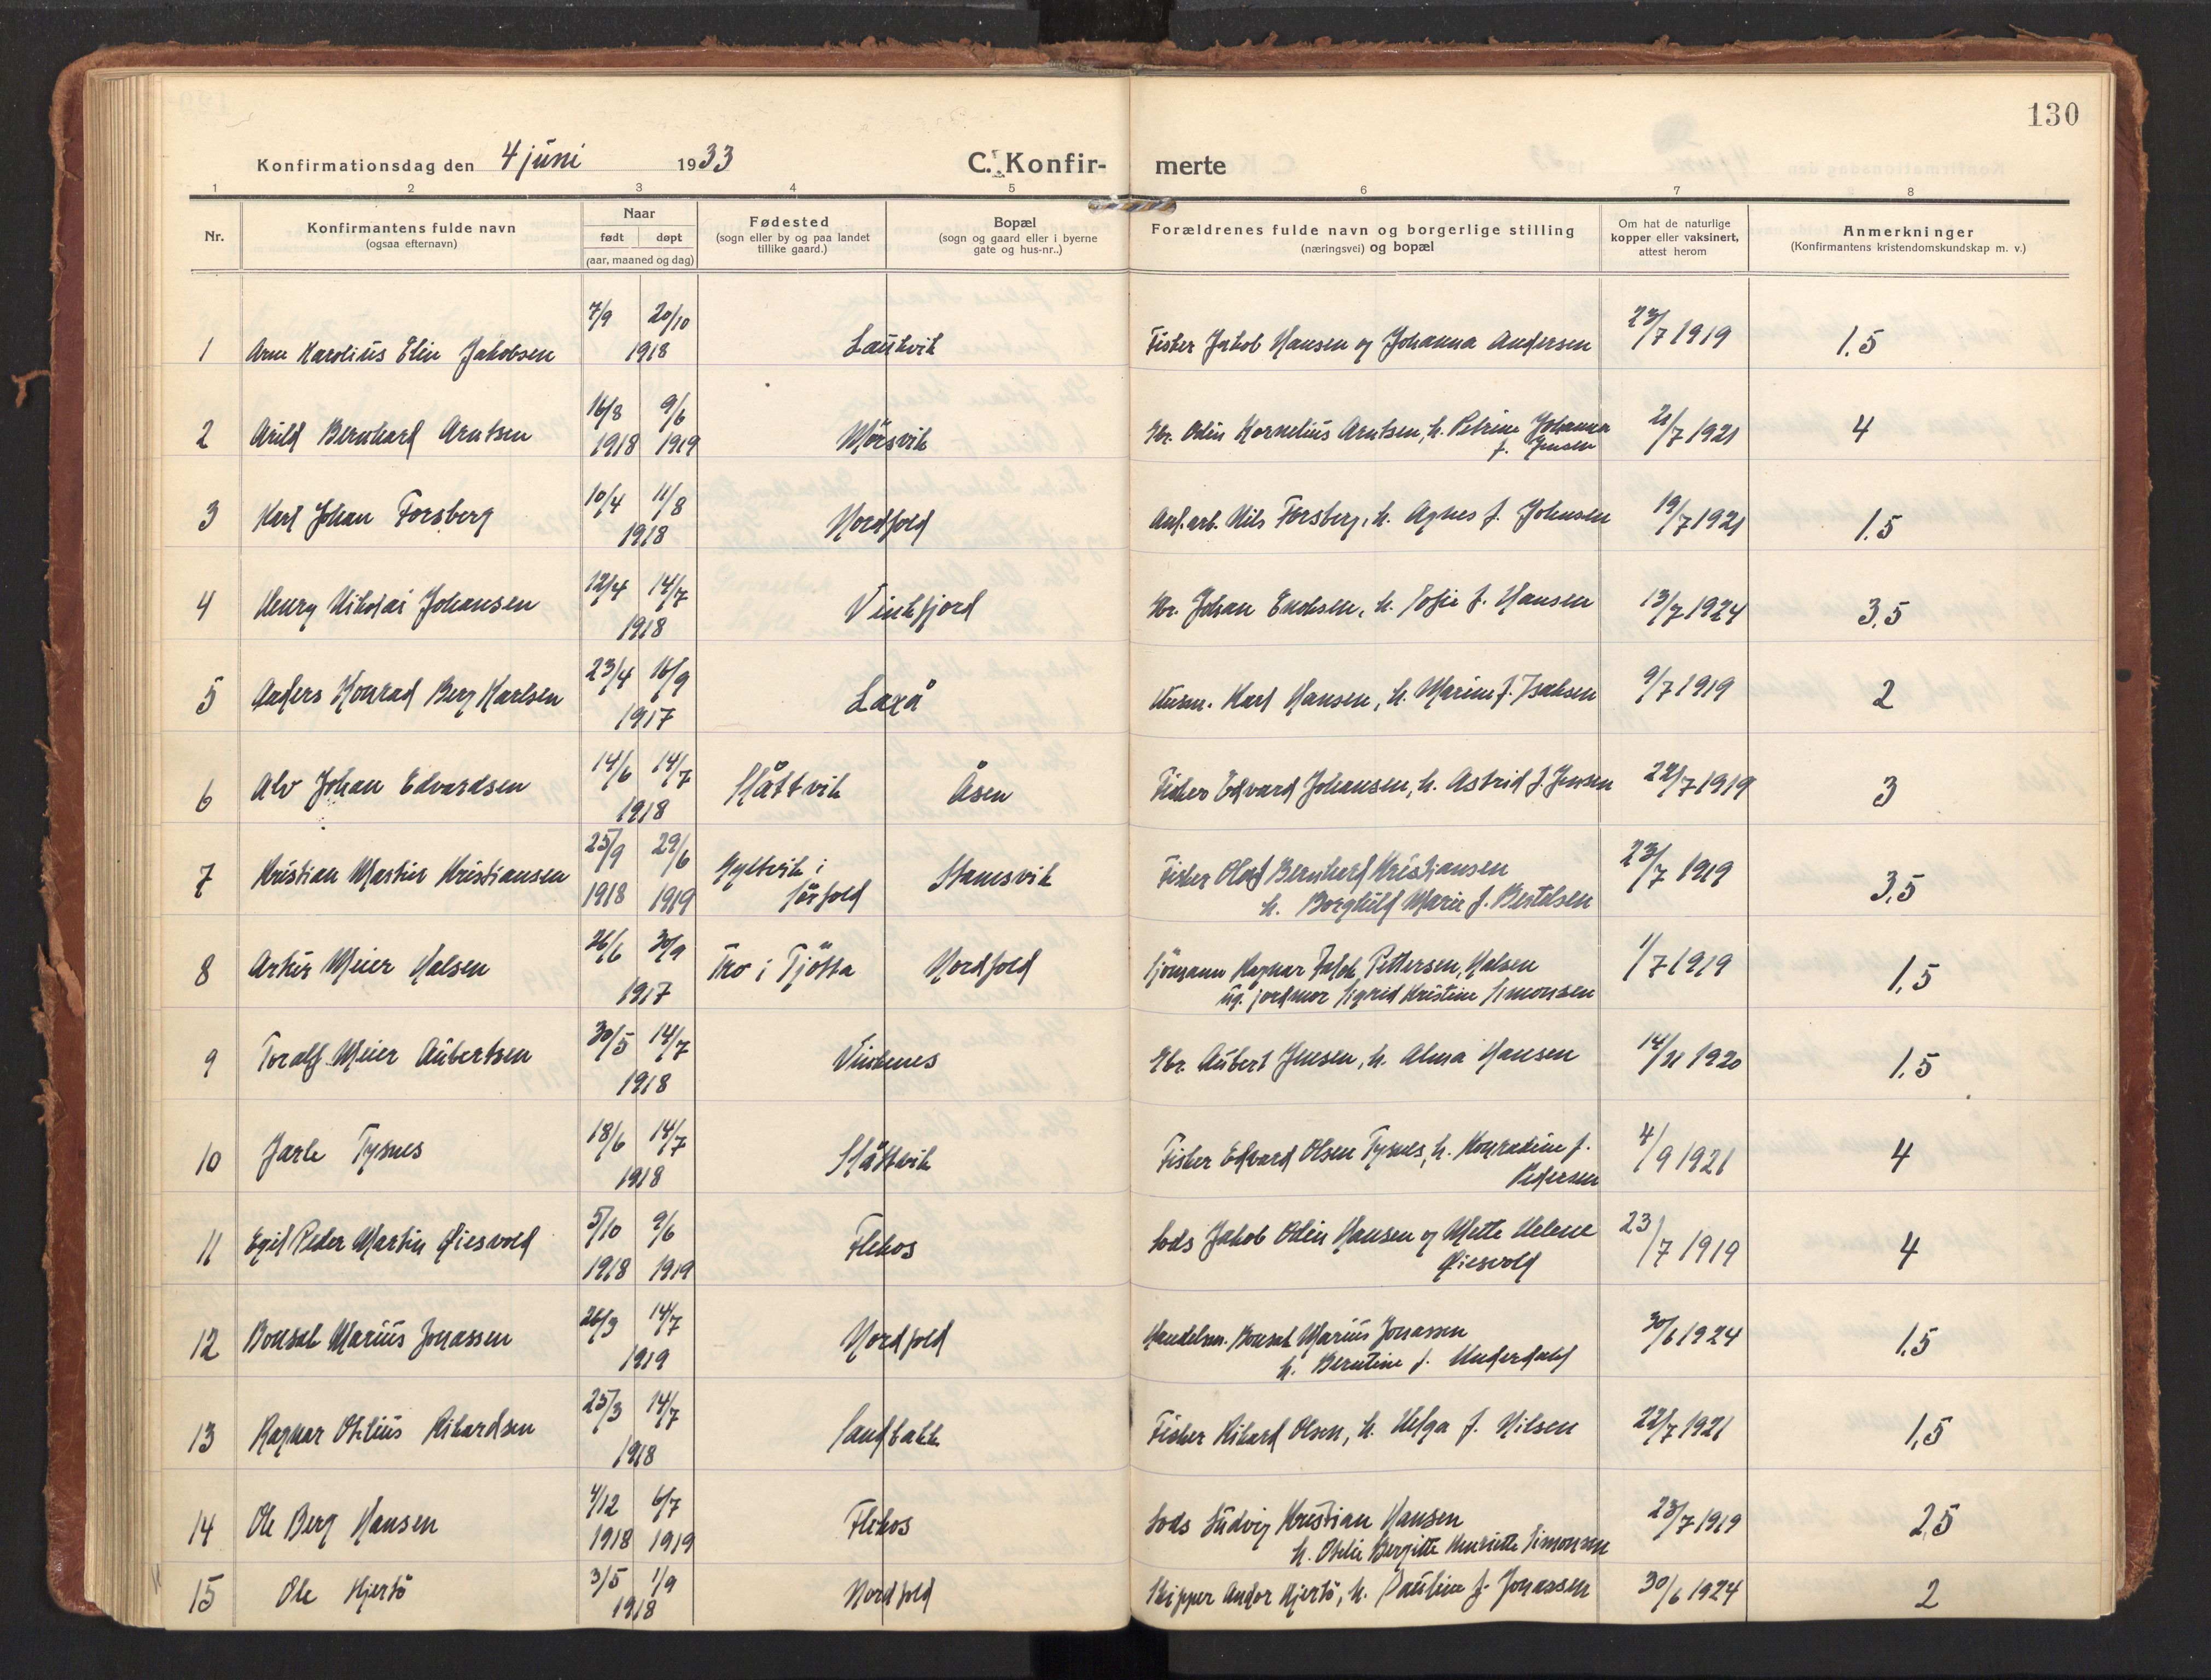 130
Konfirmationsdag den 4 juni 1933 C. Konfir- merte
1 2 3 4 5 6 7 8
Nr.
Konfirmantens fulde navn
(ogsaa efternavn)
Naar
født døpt
(aar, maaned og dag)
Fødested
(sogn eller by og paa landet
tillike gaard.)
Bopæl
(sogn og gaard eller i byerne
gate og hus-nr..)
Forældrenes fulde navn og borgerlige stilling
(næringsvei) og bopæl
Om hat de naturlige
kopper eller vaksinert,
attest herom
Anmerkninger
(Konfirmantens kristendomskundskap m. v.)
7/9 20/10 23/7 1919
1 Arne Karolius Elin Jakobsen 1918 Lautvik Fisker Jakob Hansen og Johanna Andersen 1.5
16/8 9/6
2 Arild Bernhard Arntsen 1918 1919 Mørsvik Gbr. Odin Kornelius Arntsen, h. Petrine Johanna 21/7 1921 4
f. Jensen
10/4 11/8
3 Karl Johan Forsberg 1918 Nordfold Anl.arb. Nils Forsberg, h. Agnes f. Johnsen 19/7 1921 1.5
12/4 14/7
4 Henry Nikolai Johansen 1918 Vinkfjord Gbr. Johan Enoksen, h. Sofie f. Hansen 13/7 1924 3,5
23/4 16/9
5 Anders Konrad Berg Karlsen 1917 Laxå Karl Hansen, h. Marine f. Isaksen 9/7 1919 2
14/6 14/7
6 Alv Johan Edvardsen 1918 Slåttvik Åsen Fisker Edvard Johansen, h. Astrid f. Jensen 22/7 1919 3
25/9 29/6
7 Kristian Martin Kristiansen 1918 1919 Gyltvik i Stamsvik Fisker Olaf Bernhard Kristiansen 23/7 1919 3,5
Sørfold h. Borghild Marie f. Bertelsen
26/6 30/9
8 Artur Meier Halsen 1917 Tro i Tjötta Nordfold Sjömann Ragnar Jakob Pettersen, Halsen 1/7 1919 1,5
ug. jordmor Sigrid Kristine Simonsen
30/5 14/7
9 Toralf Meier Aubertsen 1918 Vinkenes Gbr. Aubert Jensen, h. Alma Hansen 14/11 1920 1.5
18/6 14/7
10 Jarle Tysnes 1918 Slåttvik Fisker Edvard Olsen Tysnes, h. Konradine f. 4/9 1921 4
Pedersen
5/10 9/6
11 Egil Peder Martin Øiesvold 1918 1919 Flekos Lods Jakob Odin Hansen og Mette Helene 23/7 1919 4
Øiesvold
26/3 14/7
12 Bonsak Marius Jonassen 1919 Nordfold Handelsm. Bonsak Marius Jonassen 30/6 1924 1,5
h. Berntine f. Underdahl
25/3 14/7
13 Ragnar Otelius Rikardsen 1918 Sandbakk Fisker Rikard Olsen, h. Helga f. Nilsen 22/7 1921 1,5
4/12 6/7
14 Ole Berg Hansen 1918 1919 Flekos Lods Ludvig Kristian Hansen 23/7 1919 2,5
h. Otelie Bergitte Henriette Simonsen
3/5 1/9
15 Ole Hjertö 1918 Nordfold Skipper Andor Hjertö, h. Pauline f. Jonassen 30/6 1924 2